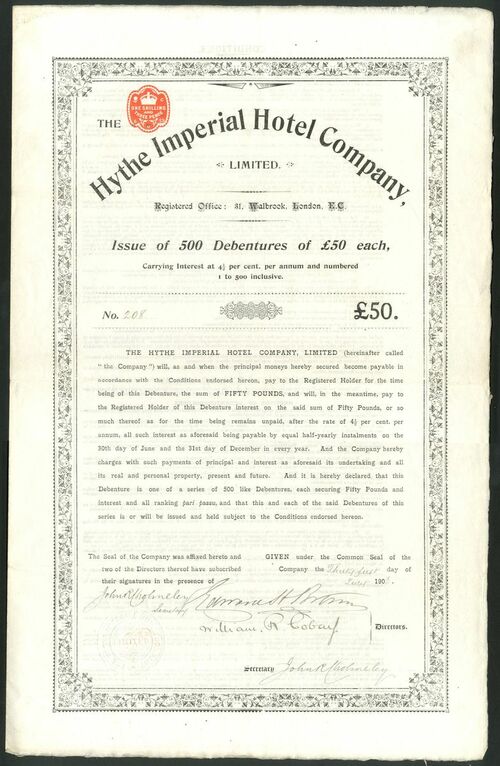 ONE SHILLING
AND
THREE PENCE
THE
Hythe Imperial Hotel Company,
LIMITED.
Registered Office: 31, Walbrook, London, E.C.
Issue of 500 Debentures of £50 each,
Carrying Interest at 4½ per cent. per annum and numbered
1 to 500 inclusive.
No. 208
£50.
THE HYTHE IMPERIAL HOTEL COMPANY, LIMITED (hereinafter called
"the Company") will, as and when the principal moneys hereby secured become payable in
accordance with the Conditions endorsed hereon, pay to the Registered Holder for the time
being of this Debenture, the sum of FIFTY POUNDS, and will, in the meantime, pay to
the Registered Holder of this Debenture interest on the said sum of Fifty Pounds, or so
much thereof as for the time being remains unpaid, after the rate of 4½ per cent. per
annum, all such interest as aforesaid being payable by equal half-yearly instalments on the
30th day of June and the 31st day of December in every year. And the Company hereby
charges with such payments of principal and interest as aforesaid its undertaking and all
its real and personal property, present and future. And it is hereby declared that this
Debenture is one of a series of 500 like Debentures, each securing Fifty Pounds and
interest and all ranking pari passu, and that this and each of the said Debentures of this
series is or will be issued and held subject to the Conditions endorsed hereon.
The Seal of the Company was affixed hereto and
two of the Directors thereof have subscribed
their signatures in the presence of
GIVEN under the Common Seal of the
Company the Thirty first day of
190
Secretary
Directors.
Secretary